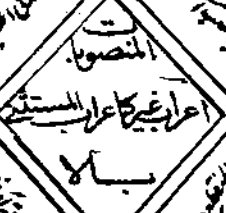 المنصوبات
اعراب غير كاعراب المستثنى
بالا